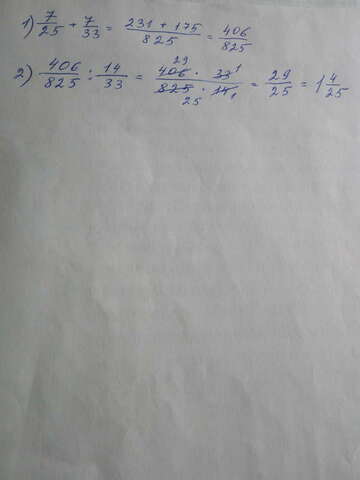 1) 7/25 + 7/33 = 231 + 175/825 = 406/825
2) 406/825 : 14/33 = 406 29 · 33 1/825 25 · 14 1 = 29/25 = 1 4/25